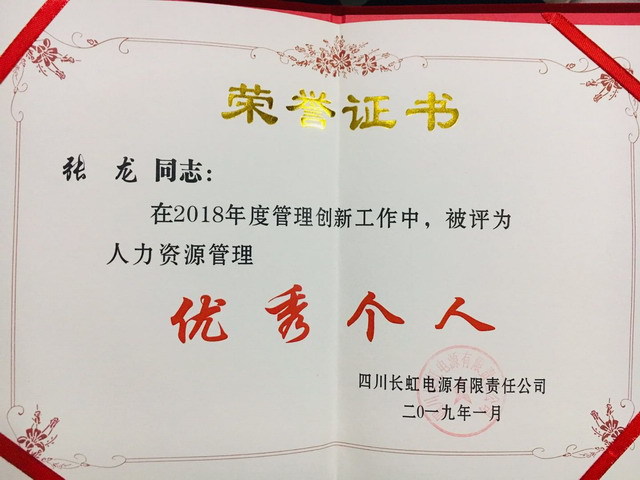 荣誉证书
张 龙 同志：
在2018年度管理创新工作中，被评为
人力资源管理
优秀个人
四川长虹电源有限责任公司
二〇一九年一月